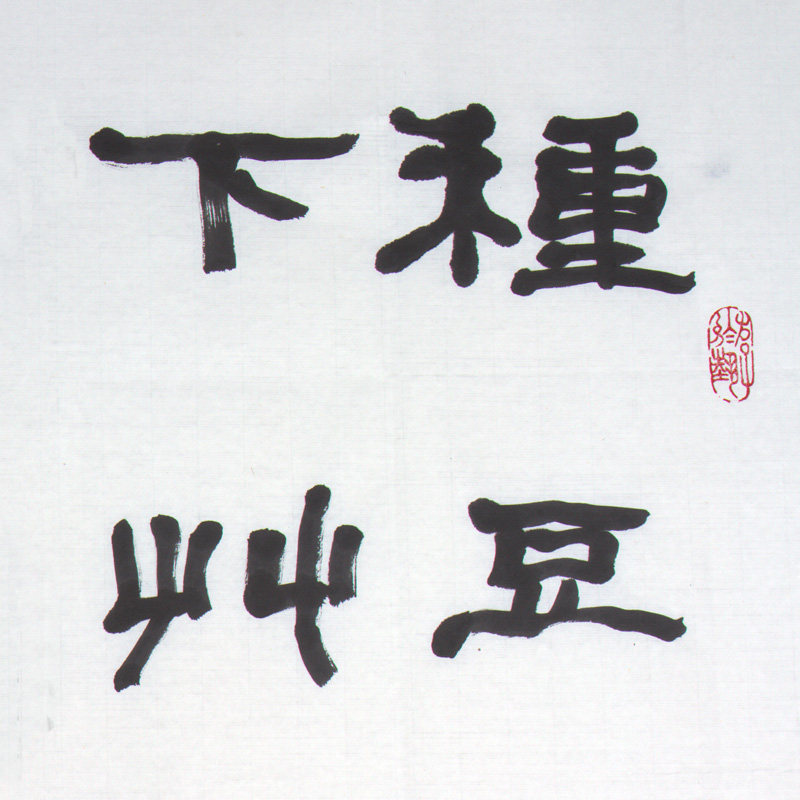 種豆
下艸